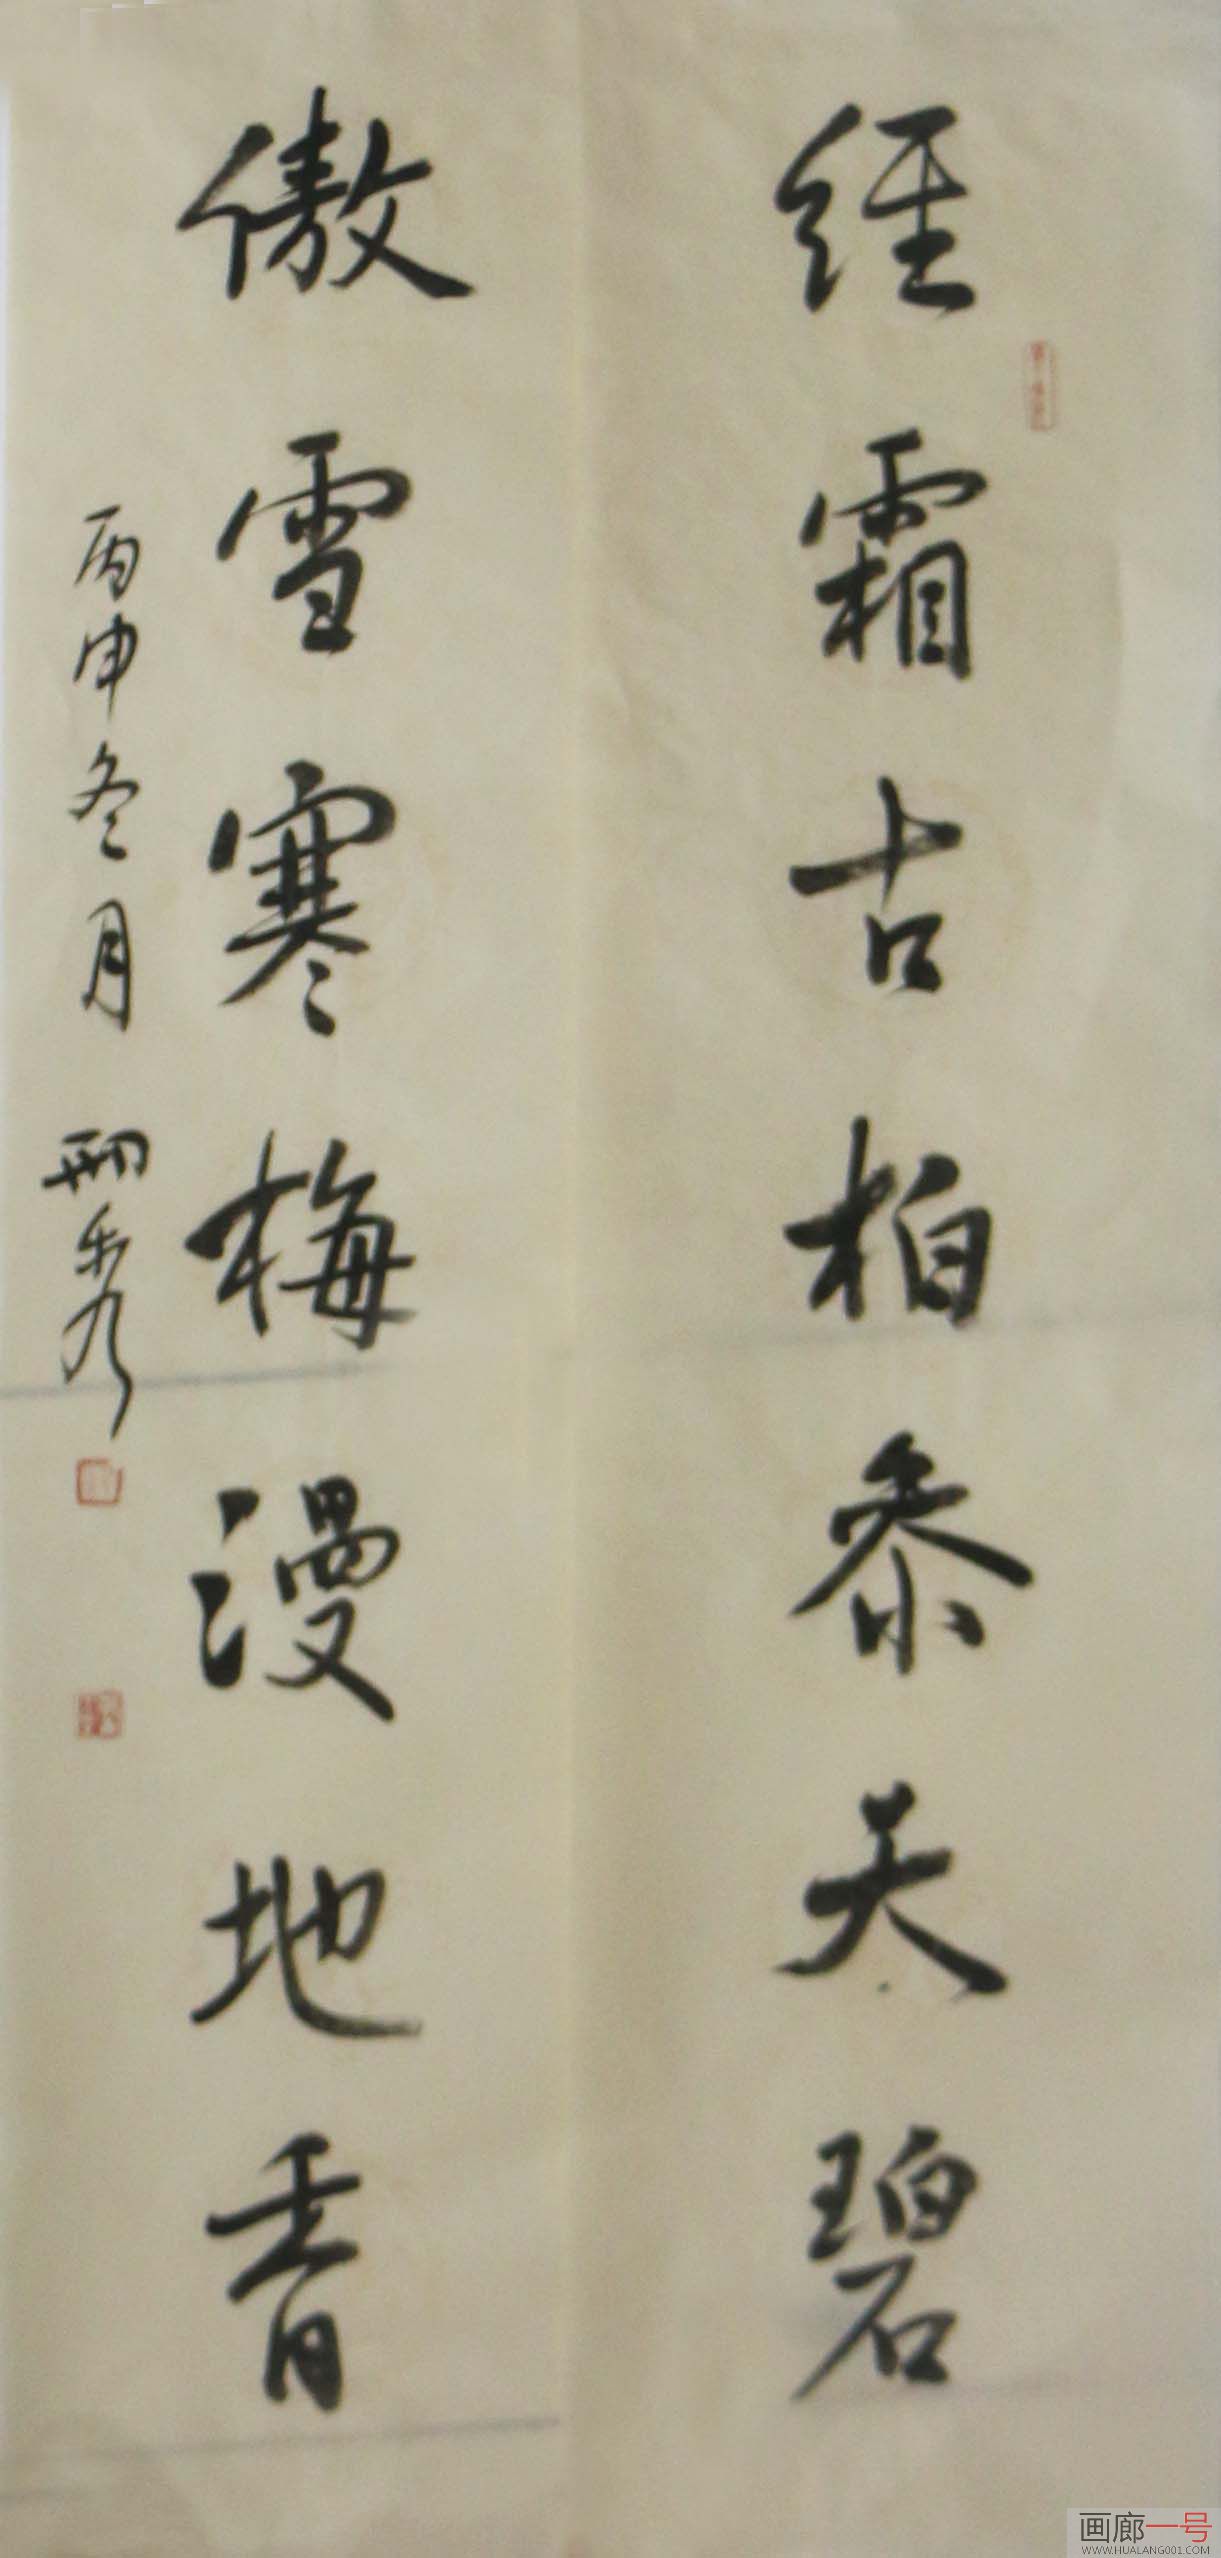 经霜古柏参天碧
傲雪寒梅漫地香
丙申冬月
画廊一号
WWW.HUALANG001.COM